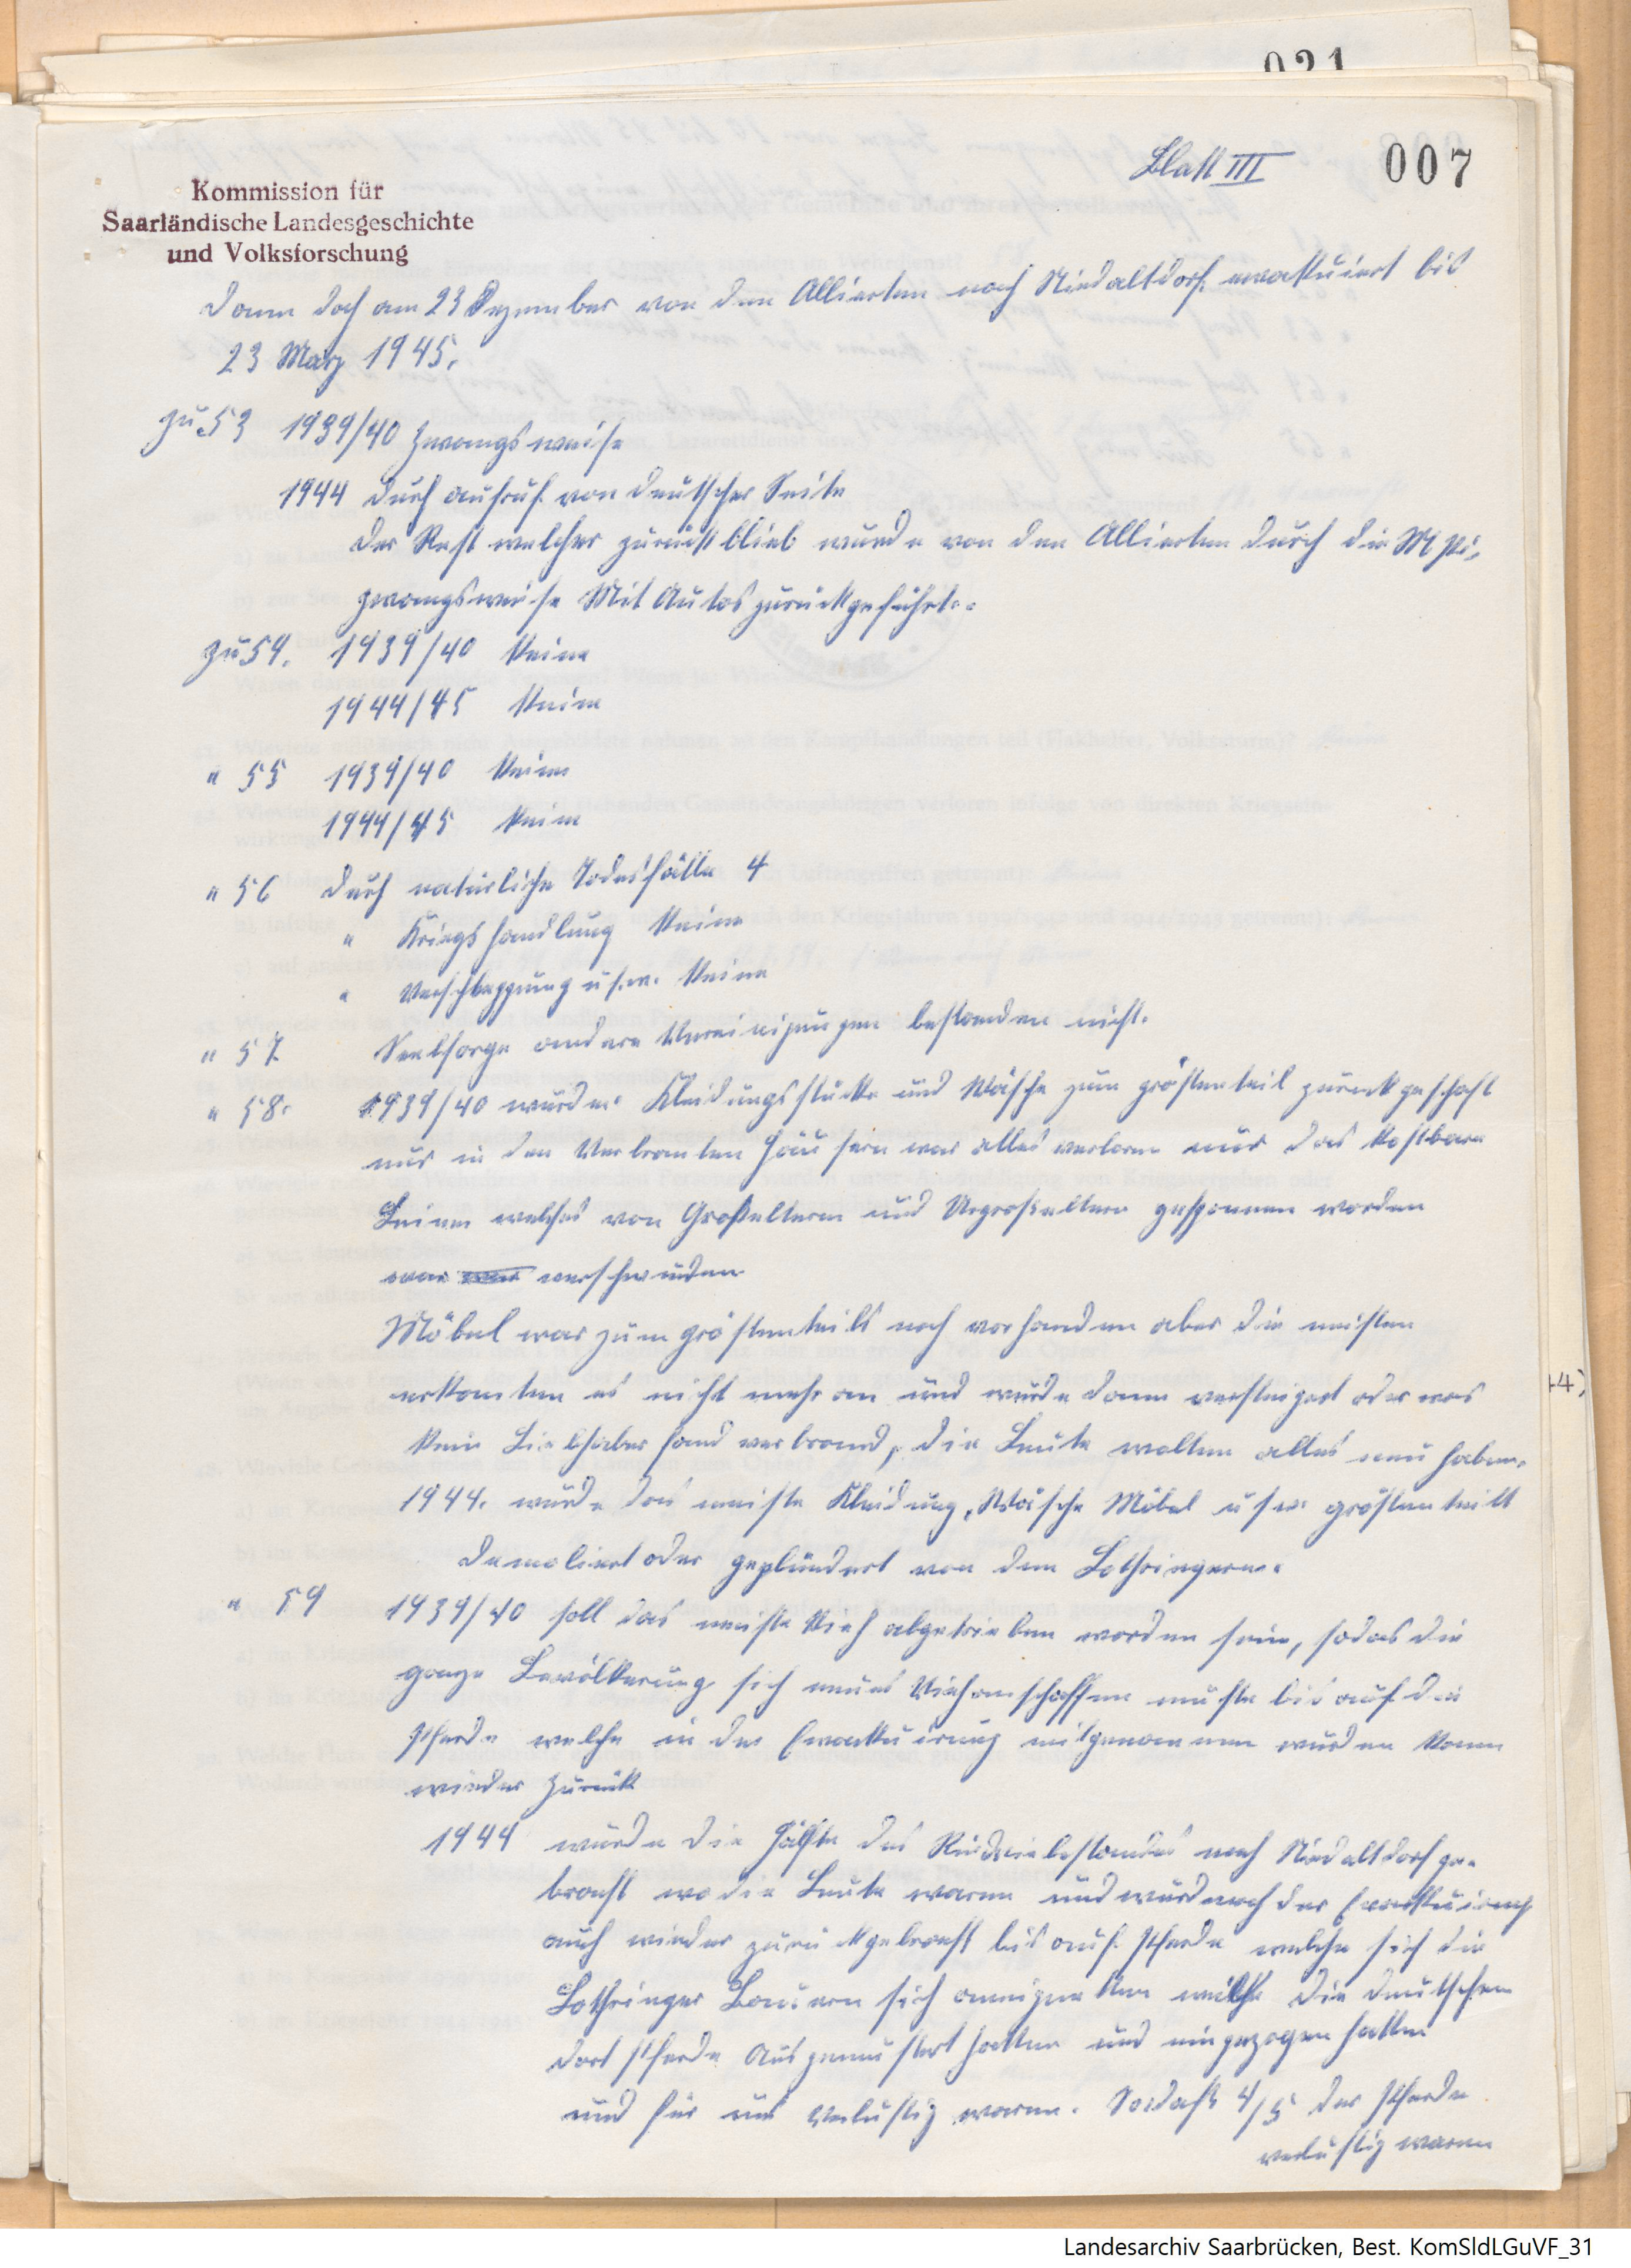 021
Blatt III
007
Kommission für
Saarländische Landesgeschichte
und Volksforschung
dann doch am 23 Dezember von den Alliierten nach Niedaltdorf evakuiert bis
23 März 1945.
zu 53 1939/40 Zwangsweise
1944 durch aufruf von deutscher Seite
der Rest welcher zurückblieb wurde von den Allierten durch die M pi,
zwangsweise Mit Autos zurückgeführt.
zu 54. 1939/40 keine
1944/45 keine
" 55 1939/40 keine
1944/45 keine
" 56 durch natürliche Todesfälle 4
" Kriegshandlung keine
" Verschleppung u.s.w. keine
" 57 Seelsorge andere Vereinigungen bestanden nicht.
" 58. 1939/40 wurden Kleidungsstücke und Wäsche zum gröstenteil zurückgeschaft
nur in den Verbranten Häusern war alles verloren nur das kostbare
Leinen welches von Großeltern und Urgroßeltern gesponnen worden
war verschwunden
Möbel war zum gröstenteils noch vorhanden aber die meisten
erkanten es nicht mehr an und wurde dann versteigert oder was
kein Liebhaber fand verbrand, die Leute wollten alles neu haben.
1944. wurde das meiste Kleidung, Wäsche Möbel usw gröstenteils
demoliert oder geplündert von den Lothringern.
" 59 1939/40 soll das meiste Vieh abgetrieben worden sein, sodas die
ganze Bevölkerung sich neues Vieh anschaffen muste bis auf die
Pferde welche in der Evakuirung mitgenommen wurden kamen
wieder zurück
1944 wurde die Hälfte des Rindviebestandes nach Niedaltdorf ge-
bracht wo die Leute waren und wurd nach der Evakuirung
auch wieder zurückgebracht bis auf Pferde welche sich die
Lothringer Bauern sich aneigneten weil die deutschen
dort Pferde Ausgemustert hatten und eingezogen hatten
und für uns verlustig waren. Sodaß 4/5 der Pferde
verlustig waren
44)
Landesarchiv Saarbrücken, Best. KomSldLGuVF_31